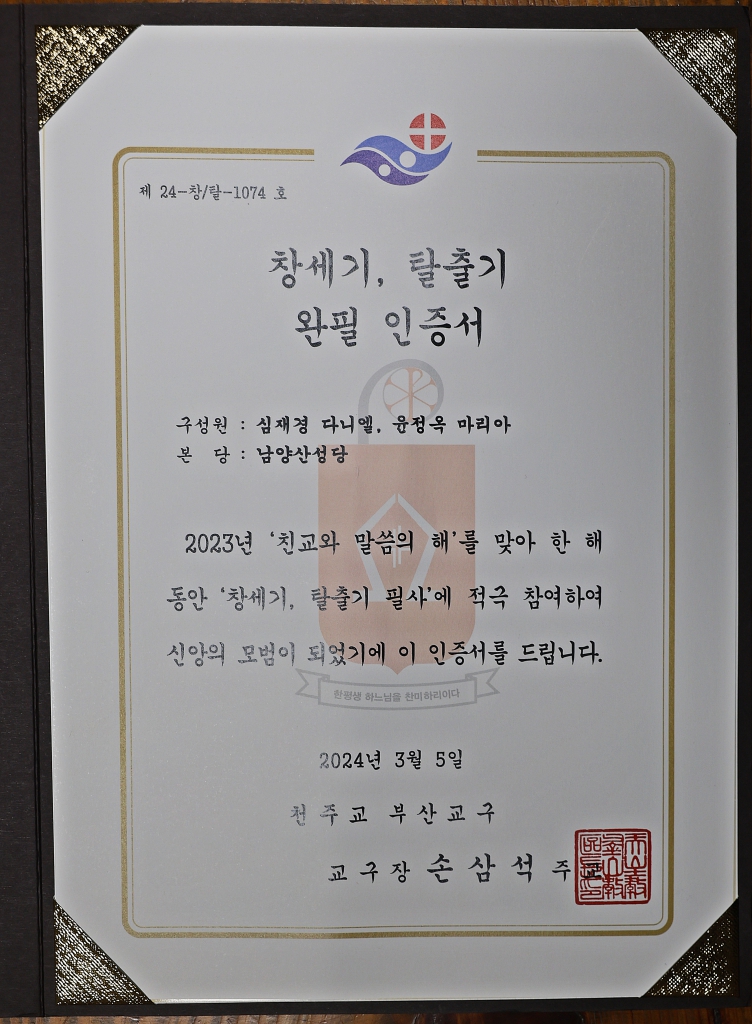 제 24-창/탈-1074 호
창세기, 탈출기
완필 인증서
구성원 : 심재경 다니엘, 윤정옥 마리아
본 당 : 남양산성당
2023년 '친교와 말씀의 해'를 맞아 한 해
동안 '창세기, 탈출기 필사'에 적극 참여하여
신앙의 모범이 되었기에 이 인증서를 드립니다.
한평생 하느님을 찬미하리이다
2024년 3월 5일
천주교 부산교구
교구장 손삼석 주교